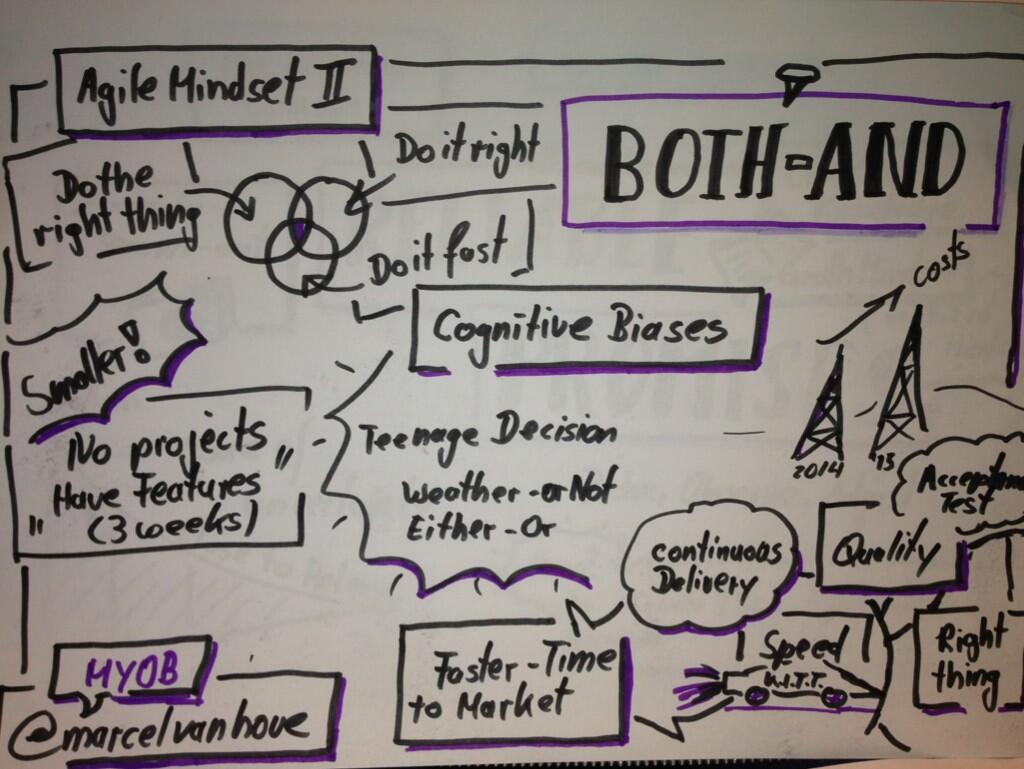 Agile Mindset II
BOTH-AND
Do the
right thing
Do it right
Do it fast
Cognitive Biases
costs
2014
15
Smaller!
No projects "
" Have Features
(3 weeks)
Teenage Decision
Weather-or Not
Either-Or
continuous
Delivery
Quality
Test
Faster-Time
to Market
Speed
K.I.T.T.
Right
thing
MYOB
@marcelvanhove